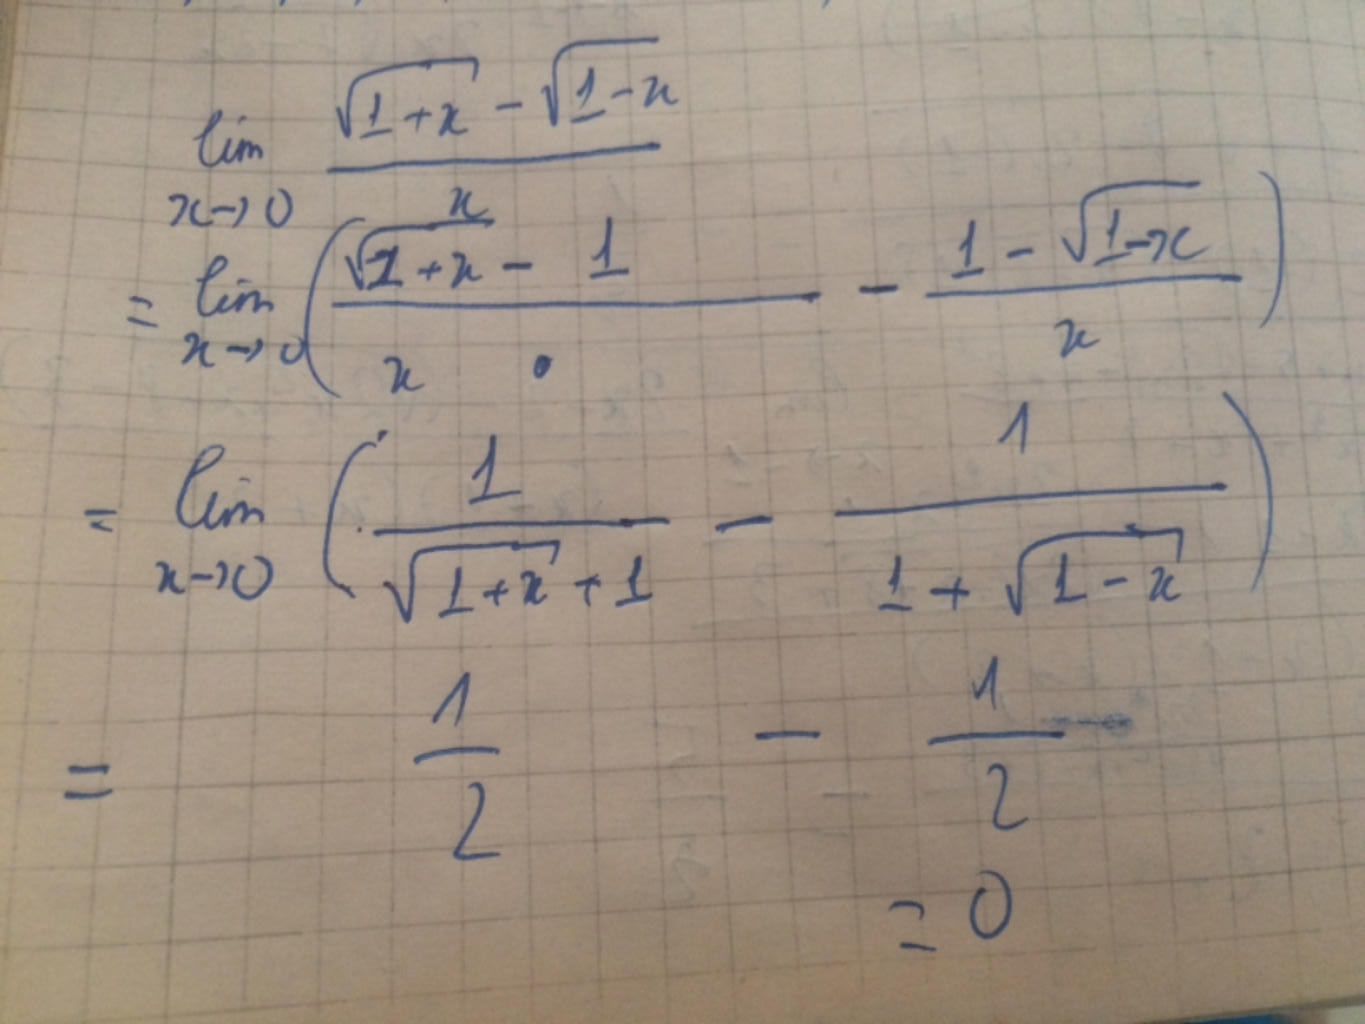 lim x→0 (√(1+x) - √(1-x))/x
= lim x→0 ((√(1+x) - 1)/x - (1 - √(1-x))/x)
= lim x→0 (1/(√(1+x) + 1) - 1/(1 + √(1-x)))
= 1/2 - 1/2
= 0